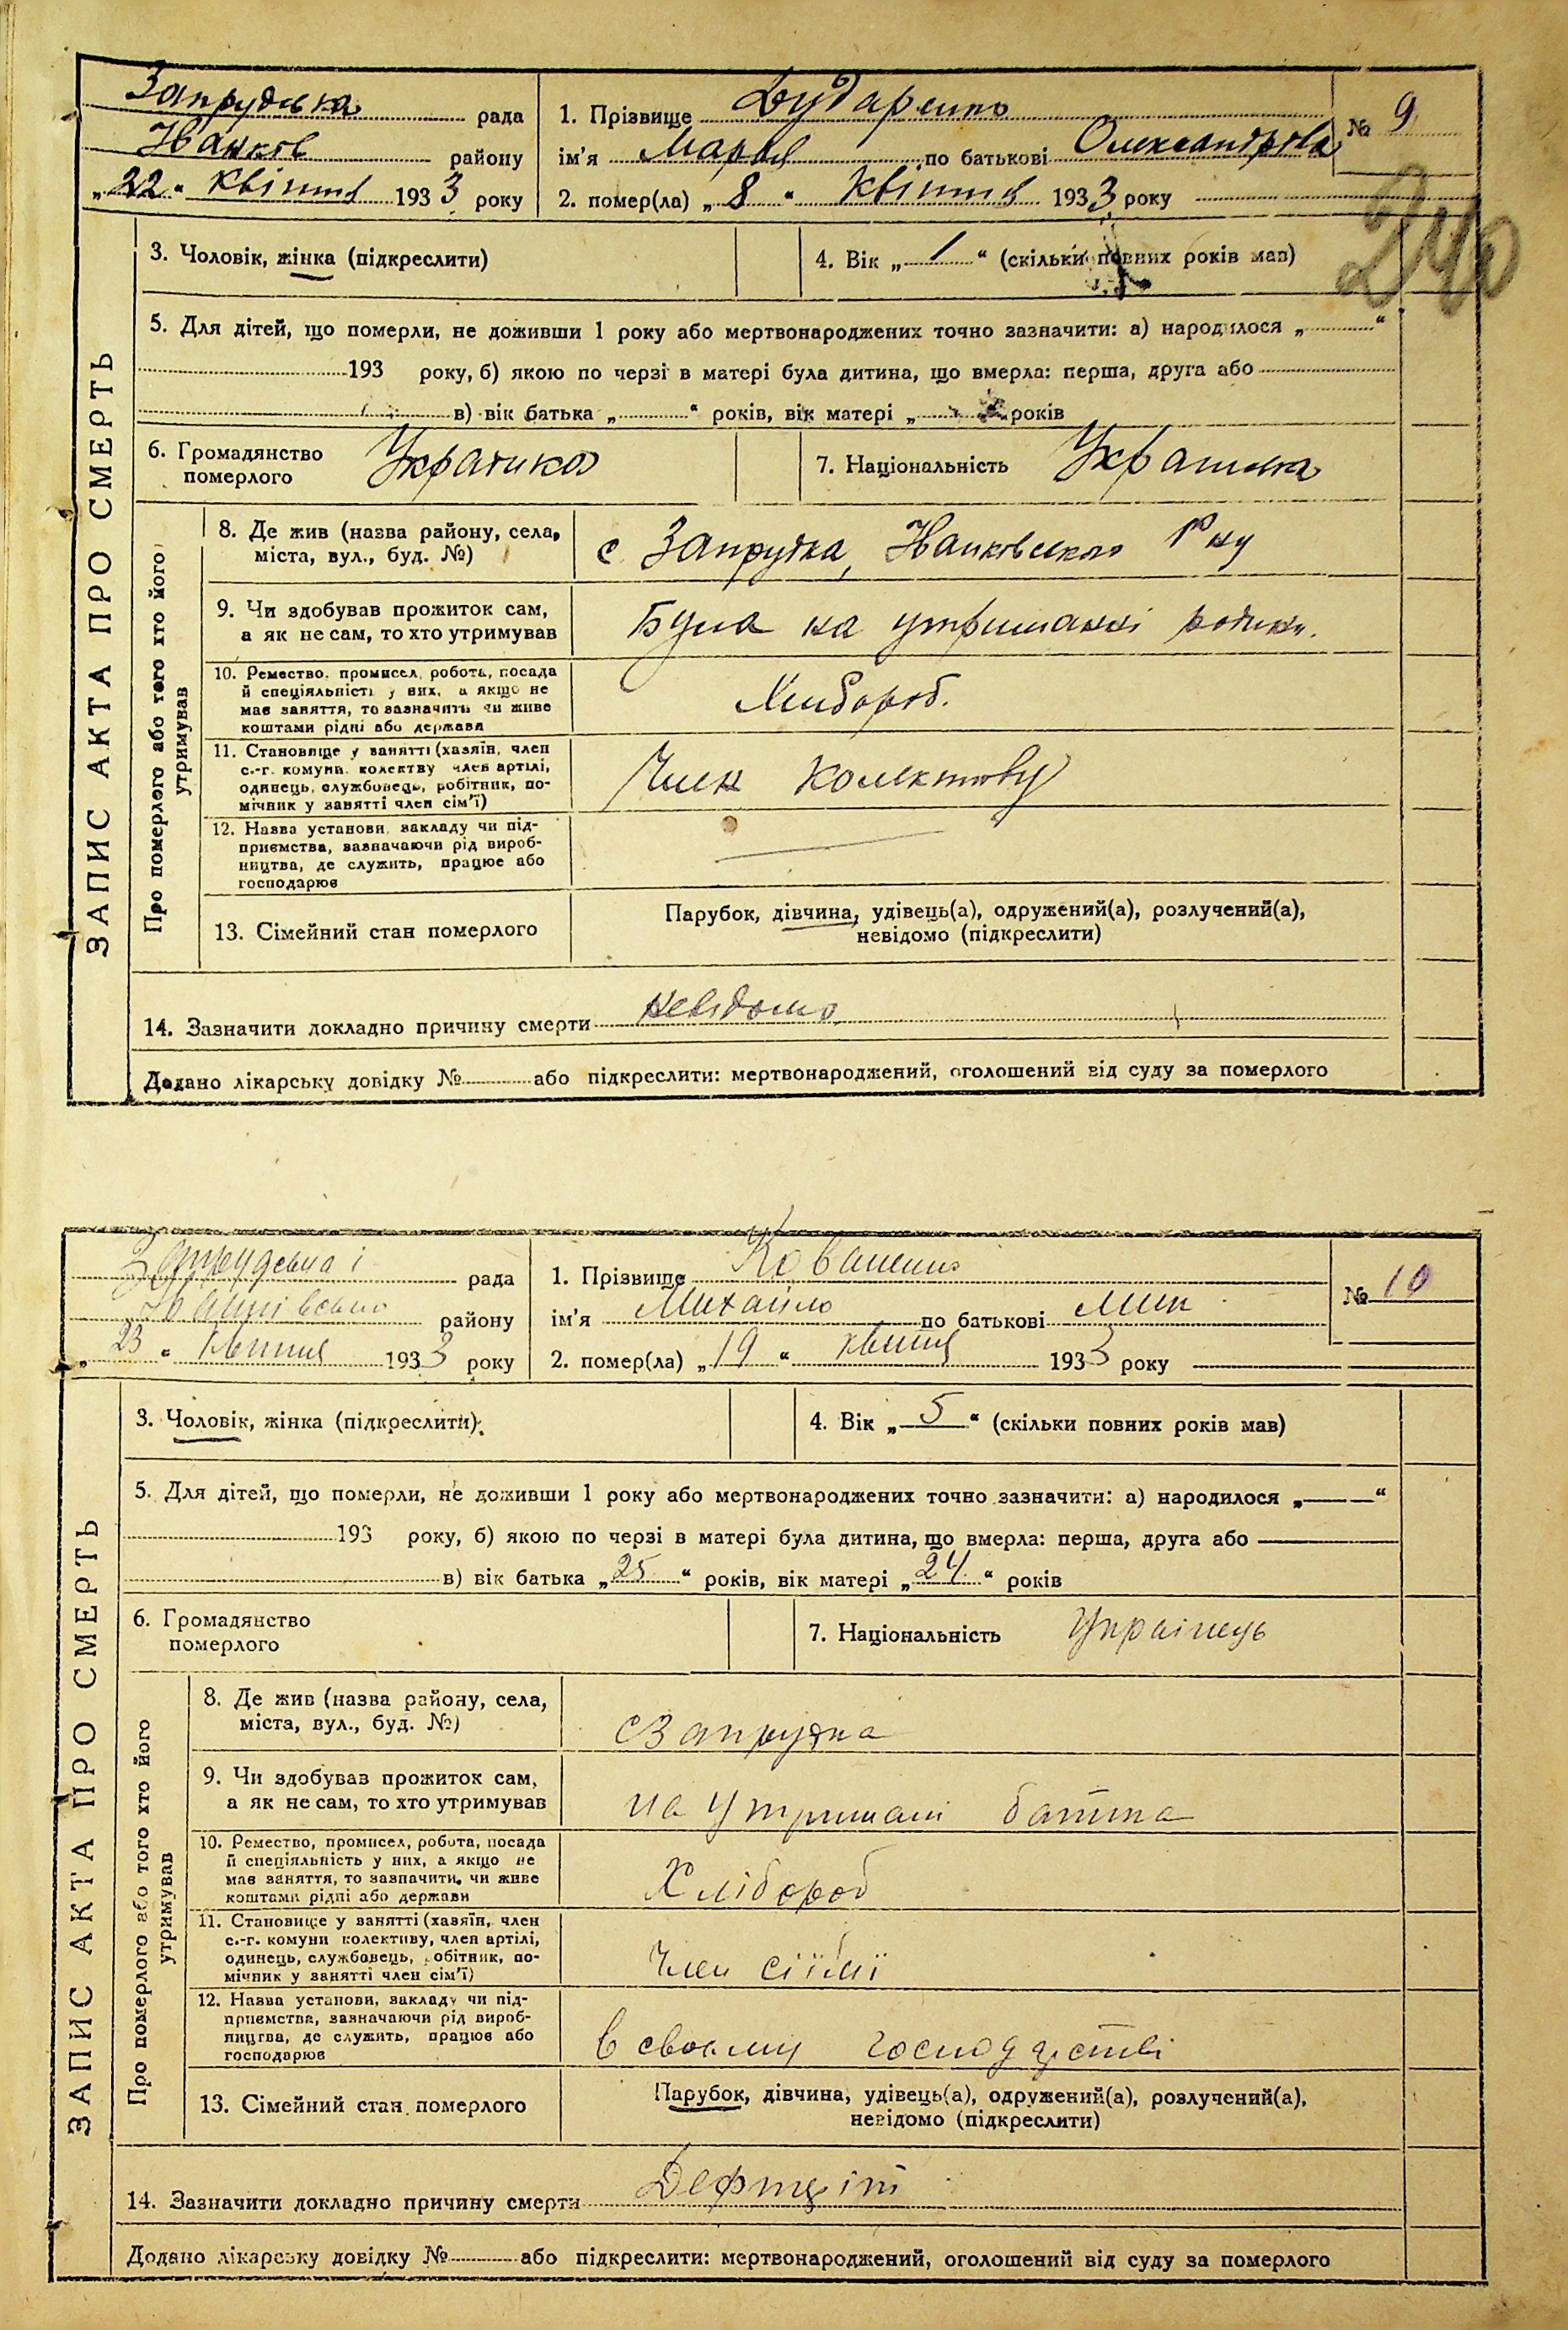 Запрудська рада
1. Прізвище
№ 9
району
ім'я Марія по батькові Олександрова
"22" Квітня 1933 року
2. помер(ла) "8" Квітня 1933 року
240
3. Чоловік, жінка (підкреслити)
4. Вік "1" (скільки повних років мав)
5. Для дітей, що померли, не доживши 1 року або мертвонароджених точно зазначити: а) народилося " "
193 року, б) якою по черзі в матері була дитина, що вмерла: перша, друга або
в) вік батька " " років, вік матері " " років
6. Громадянство
померлого
Українка
7. Національність Українка
ЗАПИС АКТА ПРО СМЕРТЬ
Про померлого або того хто його
утримував
8. Де жив (назва району, села,
міста, вул., буд. №)
с Запрудка,
9. Чи здобував прожиток сам,
а як не сам, то хто утримував
Була на утриманні родини.
10. Ремество, промисел, робота, посада
й спеціяльність у них, а якщо не
має заняття, то зазначить чи живе
коштами рідні або держави
Хлібороб.
11. Становище у занятті (хазяїн, член
с.-г. комуни, колективу член артілі,
одинець, службовець, робітник, по-
мічник у занятті член сім'ї)
Член колективу
12. Назва установи, закладу чи під-
приємства, зазначаючи рід вироб-
ництва, де служить, працює або
господарює
13. Сімейний стан померлого
Парубок, дівчина, удівець(а), одружений(а), розлучений(а),
невідомо (підкреслити)
14. Зазначити докладно причину смерти невідомо
Додано лікарську довідку № або підкреслити: мертвонароджений, оголошений від суду за померлого
рада
1. Прізвище Коваленко
№ 10
району
ім'я Михайло по батькові Мик
"23" Квітня 1933 року
2. помер(ла) "19" квітня 1933 року
3. Чоловік, жінка (підкреслити)
4. Вік "5" (скільки повних років мав)
5. Для дітей, що померли, не доживши 1 року або мертвонароджених точно зазначити: а) народилося " "
193 року, б) якою по черзі в матері була дитина, що вмерла: перша, друга або
в) вік батька "25" років, вік матері "24" років
6. Громадянство
померлого
7. Національність Українець
ЗАПИС АКТА ПРО СМЕРТЬ
Про померлого або того хто його
утримував
8. Де жив (назва району, села,
міста, вул., буд. №)
с Запрудка
9. Чи здобував прожиток сам,
а як не сам, то хто утримував
на утримані батька
10. Ремество, промисел, робота, посада
й спеціяльність у них, а якщо не
має заняття, то зазначити, чи живе
коштами рідні або держави
Хлібороб
11. Становище у занятті (хазяїн, член
с.-г. комуни колективу, член артілі,
одинець, службовець, робітник, по-
мічник у занятті член сім'ї)
Член
12. Назва установи, закладу чи під-
приємства, зазначаючи рід вироб-
ництва, де служить, працює або
господарює
в своєму
13. Сімейний стан померлого
Парубок, дівчина, удівець(а), одружений(а), розлучений(а),
невідомо (підкреслити)
14. Зазначити докладно причину смерти
Додано лікарську довідку № або підкреслити: мертвонароджений, оголошений від суду за померлого